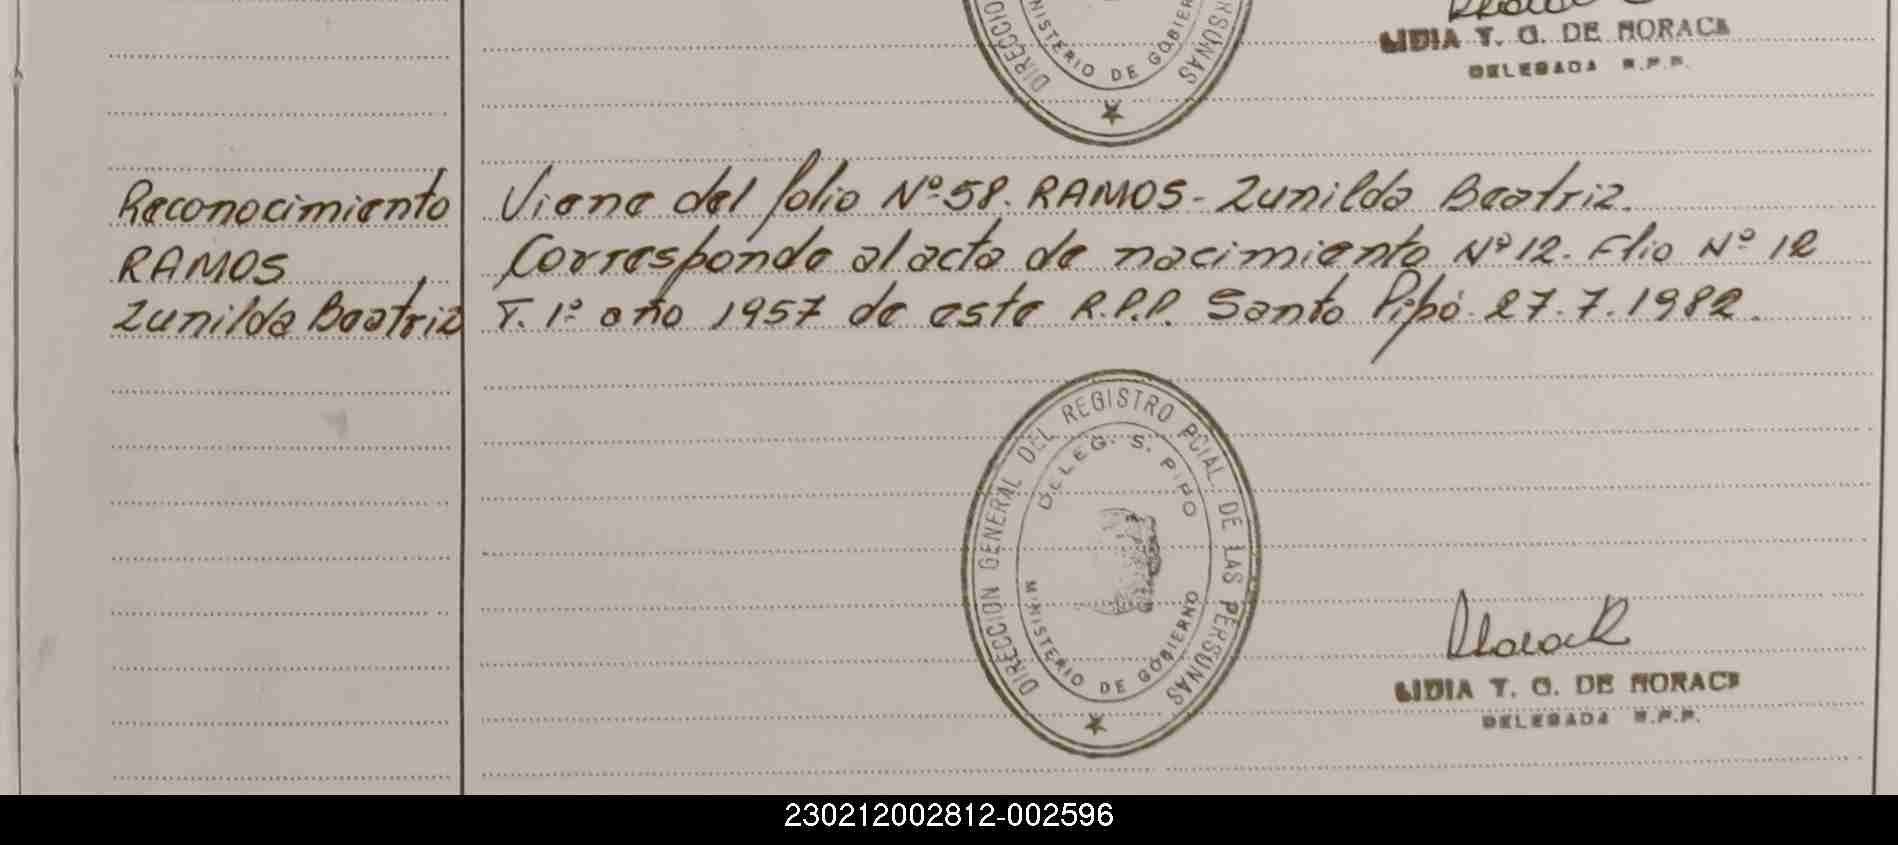 DIRECCION
MINISTERIO DE GOBIERNO
PERSONAS
LIDIA T. G. DE HORACK
DELEGADA R.P.P.
Reconocimiento
RAMOS
Zunilda Beatriz
Viene del folio Nº 58. RAMOS - Zunilda Beatriz.
Corresponde al acta de nacimiento Nº 12. Flio Nº 12
T. 1º año 1957 de este R.P.P. Santo Pipó. 27.7.1982.
DIRECCION GENERAL DEL REGISTRO PCIAL DE LAS PERSONAS
DELEG. S. PIPO
MINISTERIO DE GOBIERNO
LIDIA T. G. DE HORACK
DELEGADA R.P.P.
230212002812-002596